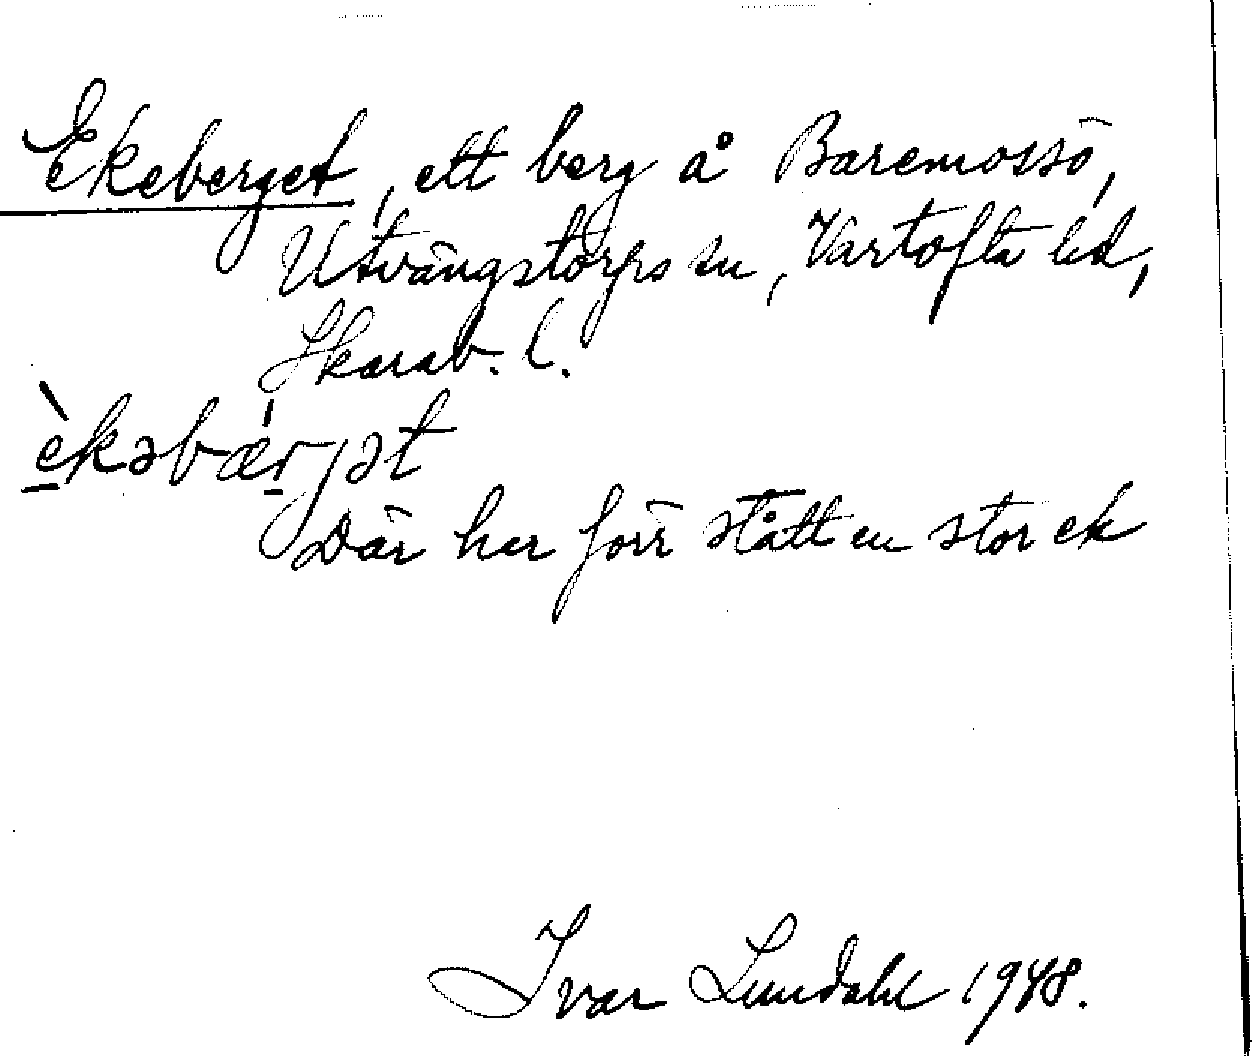 Ekeberget, ett berg å Baremossö,
Utvängstorps sn, Vartofta hd,
Skarab. l.
èkəbǽrjət
Där har förr stått en stor ek
Ivar Lundahl 1948.